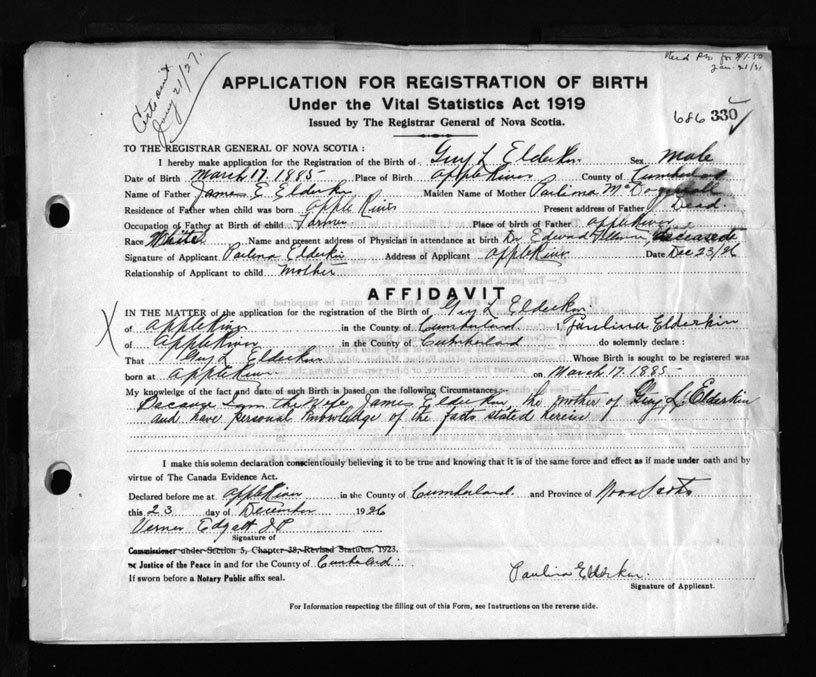 Jany 21/27.
Jan. 21/31
APPLICATION FOR REGISTRATION OF BIRTH
Under the Vital Statistics Act 1919
Issued by The Registrar General of Nova Scotia.
686 330
TO THE REGISTRAR GENERAL OF NOVA SCOTIA :
I hereby make application for the Registration of the Birth of Guy L Elderkin Sex Male
Date of Birth March 17. 1885 Place of Birth Apple River County of Cumberland
Name of Father James E Elderkin Maiden Name of Mother Paulina
Residence of Father when child was born Apple River Present address of Father Dead
Occupation of Father at Birth of child Farmer Place of birth of Father Apple River
Race White Name and present address of Physician in attendance at birth Dr Edward deceased
Signature of Applicant Paulina Elderkin Address of Applicant Apple River Date Dec 23/26
Relationship of Applicant to child Mother
AFFIDAVIT
IN THE MATTER of the application for the registration of the Birth of Guy L Elderkin
of Apple River in the County of Cumberland I, Paulina Elderkin
of Apple River in the County of Cumberland do solemnly declare :
That Guy L Elderkin Whose Birth is sought to be registered was
born at Apple River on March 17. 1885
My knowledge of the fact and date of such Birth is based on the following Circumstances:
Because I am the Wife James Elderkin the mother of Guy L. Elderkin
and have personal knowledge of the facts stated herein
I make this solemn declaration conscientiously believing it to be true and knowing that it is of the same force and effect as if made under oath and by
virtue of The Canada Evidence Act.
Declared before me at Apple River in the County of Cumberland and Province of Nova Scotia
this 23 day of December 1926
Verner Edgett J P
Signature of
Commissioner under Section 5, Chapter 38, Revised Statutes, 1923,
or Justice of the Peace in and for the County of Cumberland
If sworn before a Notary Public affix seal.
Paulina Elderkin.
Signature of Applicant.
For Information respecting the filling out of this Form, see Instructions on the reverse side.